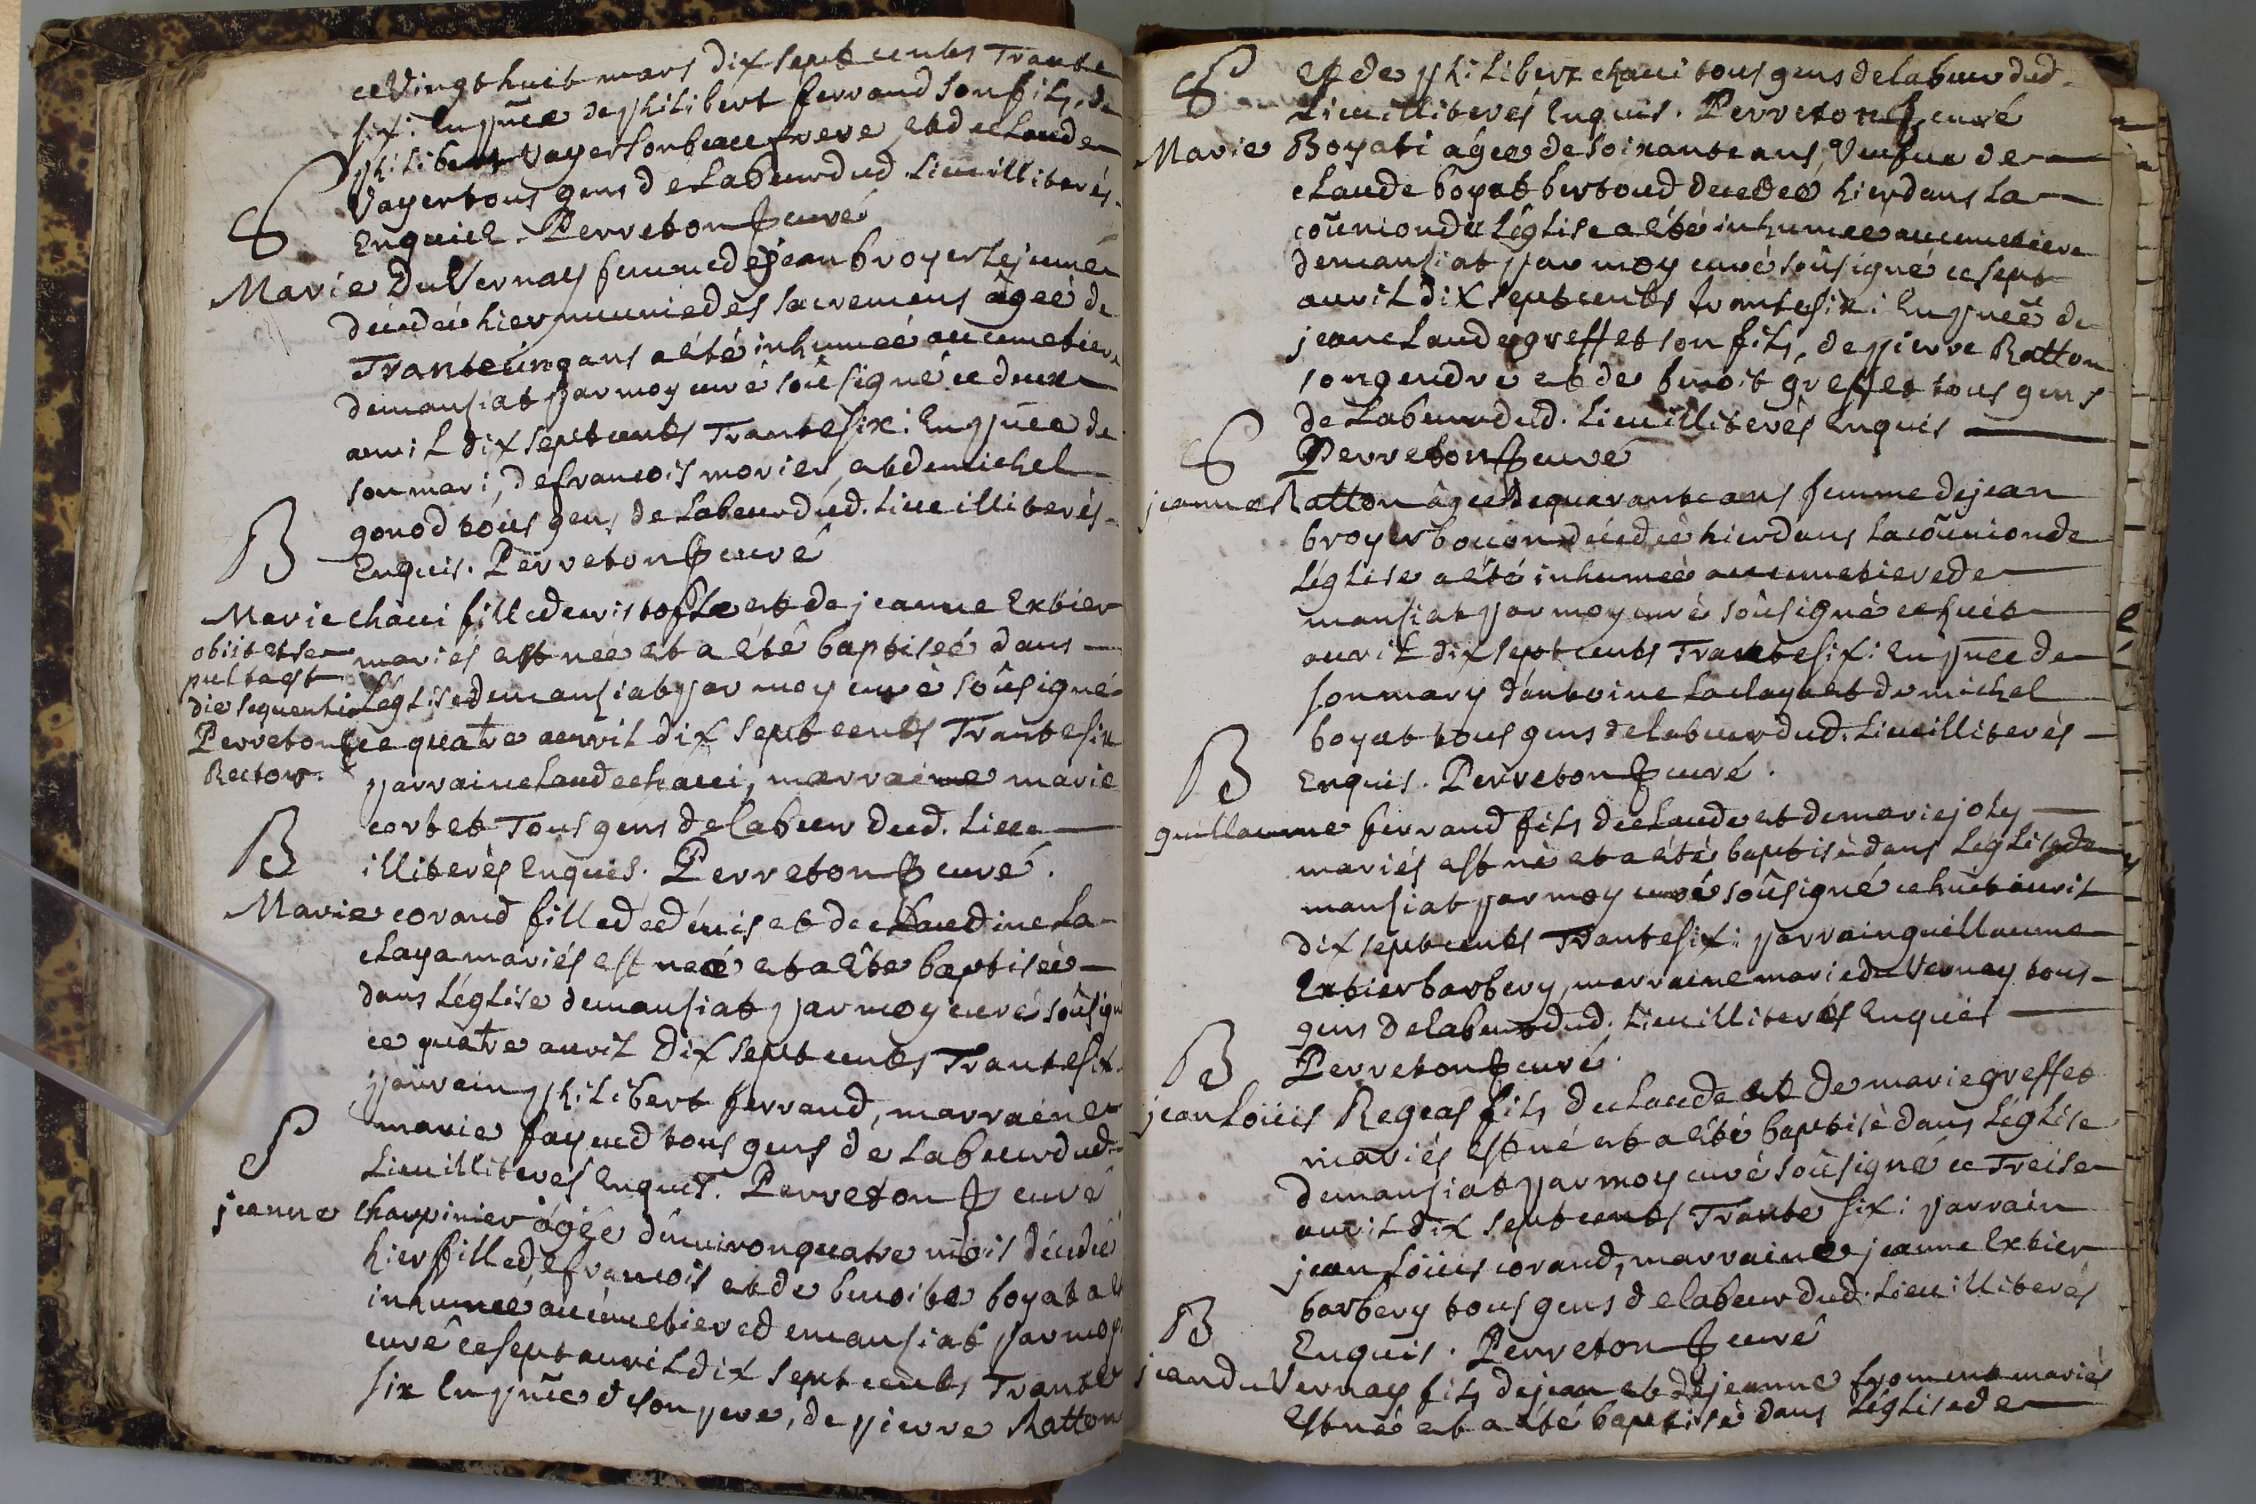 ce Vingt huit mars dix sept cents Trante
six: En pn̄ce de philibert ferrand son fils, de
philibert Vayer son beau frere et de claude
Vayer tous gens de Labeur dud. Lieu illiterés
Enquis. Perreton curé
S
Marie DuVernay femme de jean broyer Lejeune
décedeé hier munie des sacremens âgeé de
Trante cinq ans a eté inhumeé au cimetiere
de mansiat par moy curé soûsigné ce deux
avril dix sept cents Trante six: En pn̄ce de
son mari, de francois morier, et de michel
gonod tous gens de Labeur dud. Lieu illiterés
Enquis. Perreton curé
B
Marie chavi fille de cristofle et de jeanne Exbier
mariés est neé et a eté baptiseé dans
Léglise de mansiat par moy curé soûsigné
ce quatre avril dix sept cents Trante six
parrain claude chavi, marraine marie
corbet Tous gens de labeur dud. Lieu
illiterés Enquis. Perreton curé.
obiit et se
pulta est
die sequenti
Perreton
Rector.
B
Marie corand fille de denis et de claudine La
claya mariés est neé et a eté baptiseé
dans Léglise de mansiat par moy curé soûsigné
ce quatre avril dix sept cents Trante six.
parrain philibert ferrand, marraine
marie fayend tous gens de Labeur dud.
Lieu illiterés Enquis. Perreton curé
S
jeanne charpinier âgée d'environ quatre mois décedeé
hier fille de francois et de benoite boyat a eté
inhumeé au cimetiere de mansiat par moy
curé ce sept avril dix sept cents Trante
six En pn̄ce de son pere, de pierre Ratton
et de philibert chavi tous gens de labeur dud.
Lieu illiterés Enquis. Perreton curé
S
Marie Boyat âgeé de soixante ans, Veufue de
claude boyat bertoud decedeé hier dans la
com̄union de Léglise a eté inhumeé au cimetiere
de mansiat par moy curé soûsigné ce sept
avril dix sept cents trante six: En pn̄ce de
jean claude greffet son fils, de pierre Ratton
son gendre et de benoit greffet tous gens
de Labeur dud. Lieu illiterés Enquis
Perreton curé
S
jeanne Ratton âgeé de quarante ans femme de jean
broyer bouon décedeé hier dans la com̄union de
Léglise a eté inhumeé au cimetiere de
mansiat par moy curé soûsigné ce huit
avril dix sept cents Trante six: En pn̄ce de
son mary d'antoine Laclaya et de michel
boyat tous gens de labeur dud. Lieu illiterés
Enquis. Perreton curé.
B
guillaume ferrand fils de claude et de marie joly
mariés est né et a eté baptisé dans Léglise de
mansiat par moy curé soûsigné ce huit avril
dix sept cents Trante six: parrain guillaume
Exbier barbery, marraine marie du Vernay tous
gens de labeur dud. Lieu illiterés Enquis
Perreton curé.
B
jean Loüis Regeas fils de claude et de marie greffet
mariés est né et a eté baptisé dans Léglise
de mansiat par moy curé soûsigné ce Treise
avril dix sept cents Trante six: parrain
jean Loüis corand, marraine jeanne Exbier
barbery tous gens de labeur dud. Lieu illiterés
Enquis. Perreton curé
B
jean du Vernay fils de jean et de jeanne froment mariés
est né et a eté baptisé dans Léglise de